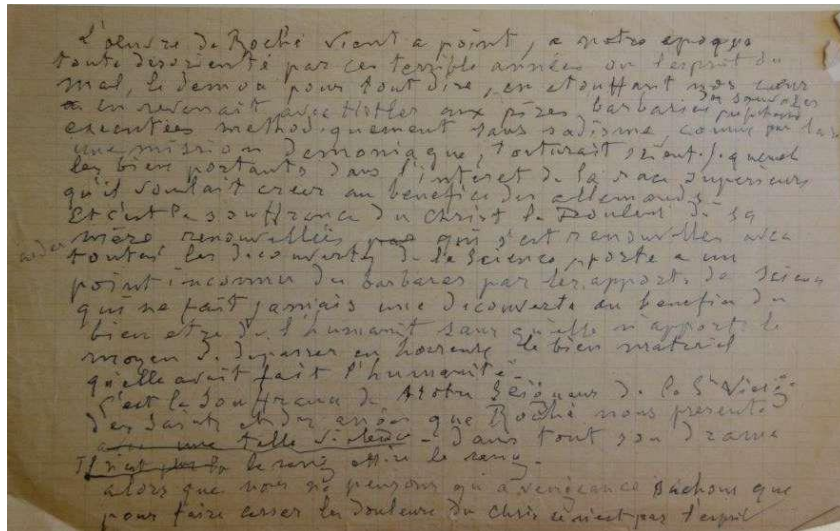 L'oeuvre de Roché vient a point, a notre epoque
toute desorienté par ces terrible années ou l'esprit du
mal, le demon pour tout dire, en etouffant nos cœur
en revenait avec Hitler aux pires barbaries des sauvages
executées methodiquement sans sadisme, comme par
une mission demoniaque, torturait
les bien portants dans l'interet de la race superieure
qu'il voulait creer au benefice des allemands.
Et c'est la souffrance du Christ la Douleur de sa
mère renouvellées qui s'est renouvellée avec
toutes les decouvertes de la Science, porté a un
point inconnu des barbares par les apports de science
qui ne fait jamais une decouverte au benefice du
bien etre de l'humanité sans qu'elle n'apporte le
moyen de depasser en horreur le bien materiel
qu'elle avait fait l'humanité.
C'est la Souffrance de Notre Seigneur de la Ste Vierge
des Saints et des anges que Roché nous presente
avec une telle violence - dans tout son drame
le sang attire le sang.
alors que nous ne pensons qu'a vengeance Sachons que
pour faire cesser les douleurs du Christ ce n'est pas l'esprit